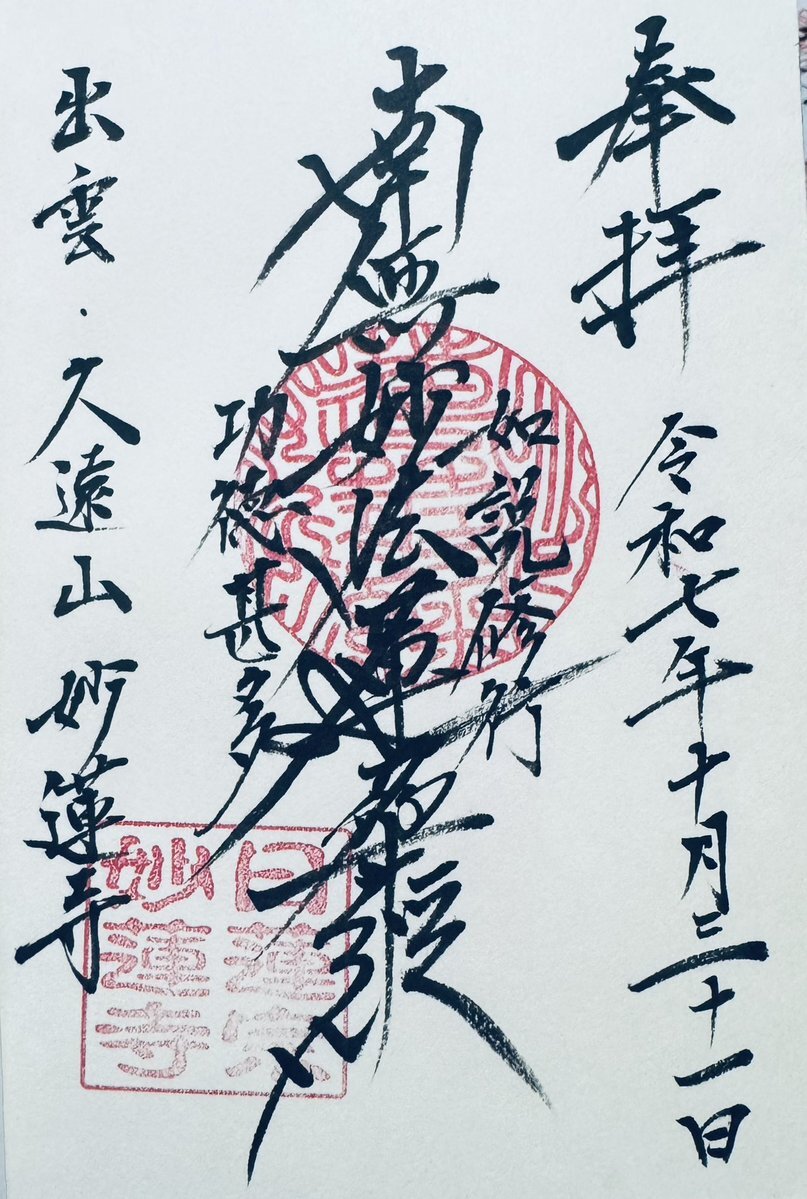 奉拝
令和七年十月三十一日
如説修行
南無妙法蓮華経
功徳甚多
出雲・久遠山 妙蓮寺
日蓮宗
妙蓮寺